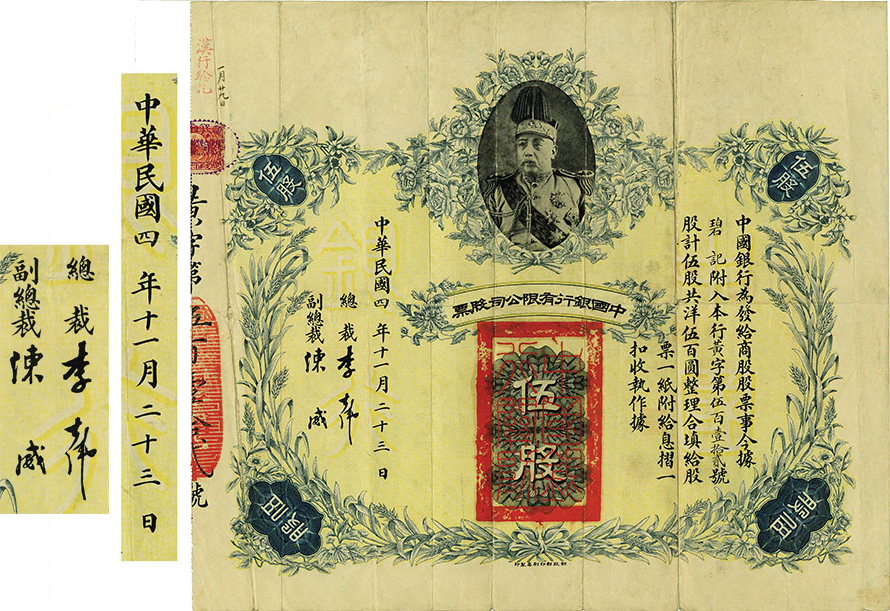 伍股
伍股
中國銀行有限公司股票
中國銀行為發給商股股票事今據
碧 記附入本行黃字第伍百壹拾貳號
股計伍股共洋伍百圓整理合填給股
票一紙附給息摺一
扣收執作據
伍股
中華民國四 年十一月二十三 日
總裁 李士偉
副總裁 陳威
伍股
伍股
財政部印刷局製印
漢行驗記
一月廿九日
黃字第伍百壹拾貳號
中華民國四 年十一月二十三 日
總裁 李士偉
副總裁 陳威